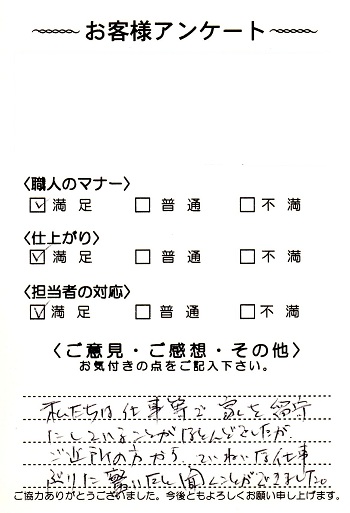 お客様アンケート
〈職人のマナー〉
☑ 満足 □ 普通 □ 不満
〈仕上がり〉
☑ 満足 □ 普通 □ 不満
〈担当者の対応〉
☑ 満足 □ 普通 □ 不満
〈ご意見・ご感想・その他〉
お気付きの点をご記入下さい。
私たちは仕事等で家を留守
にしていることがほとんどでしたが
ご近所の方から ていねいな仕事
ぶりだ 聞くことができました。
ご協力ありがとうございました。今後ともよろしくお願い申し上げます。